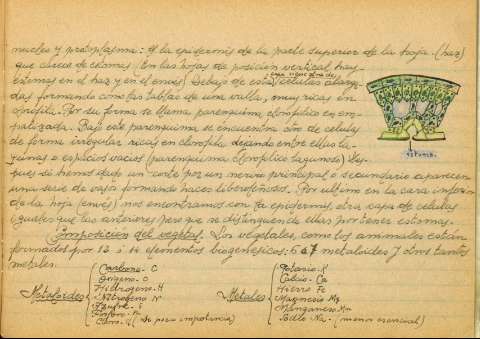 nucleo y protoplasma: A la epidermis de la parte superior de la hoja (haz)
que carece de estomas (En las hojas de posición vertical hay
estomas en el haz y en el envés) Debajo de esta células alarga-
das formando como las tablas de una valla, muy ricas en
clorofila. Por su forma se llama parenquima clorofílico en em-
palizada. Bajo este parenquima se encuentra otro de celulas
de forma irregular ricas en clorofila dejando entre ellas la-
gunas o espacios vacios (parenquima clorofílico lagunoso) Des-
pues si hemos dado un corte por un nervio principal o secundario aparecen
una serie de vasos formando haces liberoleñosos. Por ultimo en la cara inferior
de la hoja (envés) nos encontramos con la epidermis, otra capa de celulas
iguales que las anteriores pero que se distinguen de ellas por tener estomas.
Composición del vegetal. Los vegetales, como los animales están
formados por 12 ó 14 elementos biogenesicos: 6 ó 7 metaloides y otros tantos
metales.
Metaloides
Carbono - C
Oxigeno - O
Hidrogeno - H
Nitrogeno N
Azufre - S
Fosforo -
Cloro - (de poca importancia)
Metales
Potasio - K
Calcio - Ca
Hierro Fe
Magnesio Mg
Manganeso Mn
Sodio Na - (menos esencial)